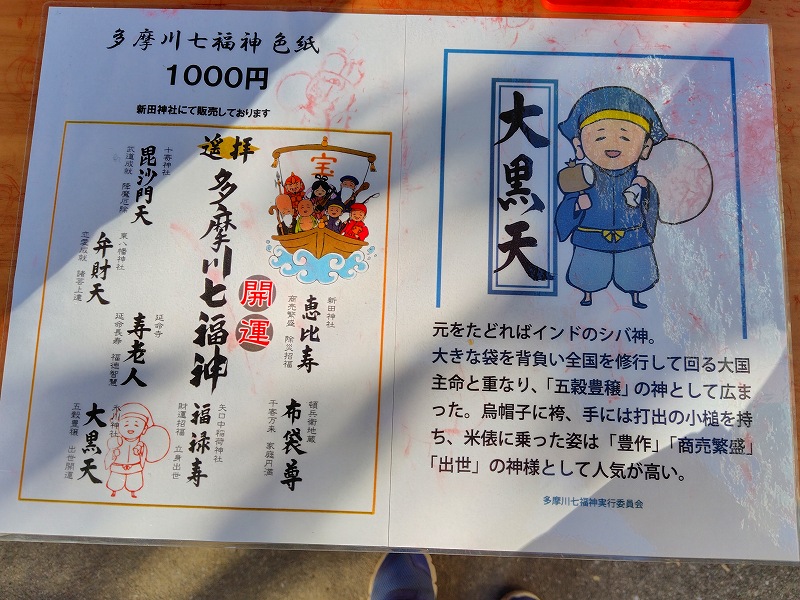 多摩川七福神 色紙
1000円
新田神社にて販売しております
遥拝
多摩川七福神
開運
宝
新田神社
恵比寿
商売繁盛 除災招福
頓兵衛地蔵
布袋尊
千客万来 家庭円満
矢口中稲荷神社
福禄寿
財運招福 立身出世
十寄神社
毘沙門天
武道成就 降魔厄除
東八幡神社
弁財天
恋愛成就 諸芸上達
延命寺
寿老人
延命長寿 福徳智慧
氷川神社
大黒天
五穀豊穣 出世開運
大黒天
元をたどればインドのシバ神。
大きな袋を背負い全国を修行して回る大国
主命と重なり、「五穀豊穣」の神として広ま
った。烏帽子に袴、手には打出の小槌を持
ち、米俵に乗った姿は「豊作」「商売繁盛」
「出世」の神様として人気が高い。
多摩川七福神実行委員会